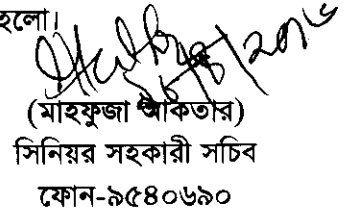 হলো।
(মাহফুজা আকতার)
সিনিয়র সহকারী সচিব
ফোন-৯৫৪০৬৯০